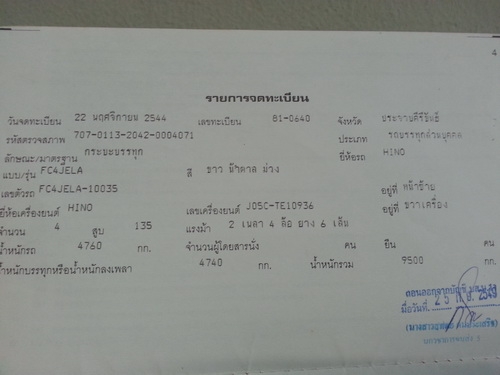 4
รายการจดทะเบียน
วันจดทะเบียน 22 พฤศจิกายน 2544 เลขทะเบียน 81-0640 จังหวัด ประจวบคีรีขันธ์
รหัสตรวจสภาพ 707-0113-2042-0004071 ประเภท รถบรรทุกส่วนบุคคล
ลักษณะ/มาตรฐาน กระบะบรรทุก ยี่ห้อรถ HINO
แบบ/รุ่น FC4JELA สี ขาว น้ำตาล ม่วง
เลขตัวรถ FC4JELA-10035 อยู่ที่ หน้าซ้าย
ยี่ห้อเครื่องยนต์ HINO เลขเครื่องยนต์ J05C-TE10936 อยู่ที่ ขวาเครื่อง
จำนวน 4 สูบ 135 แรงม้า 2 เพลา 4 ล้อ ยาง 6 เส้น
น้ำหนักรถ 4760 กก. จำนวนผู้โดยสารนั่ง คน ยืน คน
น้ำหนักบรรทุกหรือน้ำหนักลงเพลา 4740 กก. น้ำหนักรวม 9500 กก.
เมื่อวันที่ 25